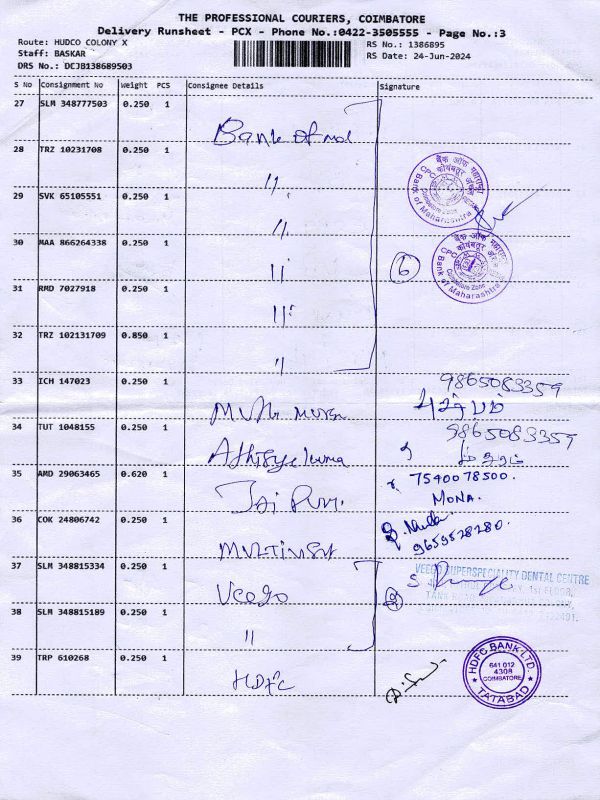 THE PROFESSIONAL COURIERS, COIMBATORE
Delivery Runsheet - PCX - Phone No.:0422-3505555 - Page No.:3
Route: HUDCO COLONY X
RS No.: 1386895
Staff: BASKAR
RS Date: 24-Jun-2024
DRS No.: DCJB138689503
S No Consignment No Weight PCS Consignee Details Signature
27 SLM 348777503 0.250 1
Bank of
28 TRZ 10231708 0.250 1
बैंक ऑफ महाराष्ट्र
Bank of Maharashtra
Coimbatore Zone
29 SVK 65105551 0.250 1
30 MAA 866264338 0.250 1
बैंक ऑफ महाराष्ट्र
Bank of Maharashtra
Coimbatore Zone
6
31 RMD 7027918 0.250 1
32 TRZ 102131709 0.850 1
33 ICH 147023 0.250 1
9865083359
34 TUT 1048155 0.250 1
9865083359
35 AMD 29063465 0.620 1
7540078500
MONA.
36 COK 24806742 0.250 1
9659528280.
37 SLM 348815334 0.250 1
Veego
VEEGO SUPERSPECIALITY DENTAL CENTRE
1st FLOOR,
TANK ROAD
38 SLM 348815189 0.250 1
"
39 TRP 610268 0.250 1
HDFC
HDFC BANK LTD.
641 012
4308
COIMBATORE
TATABAD